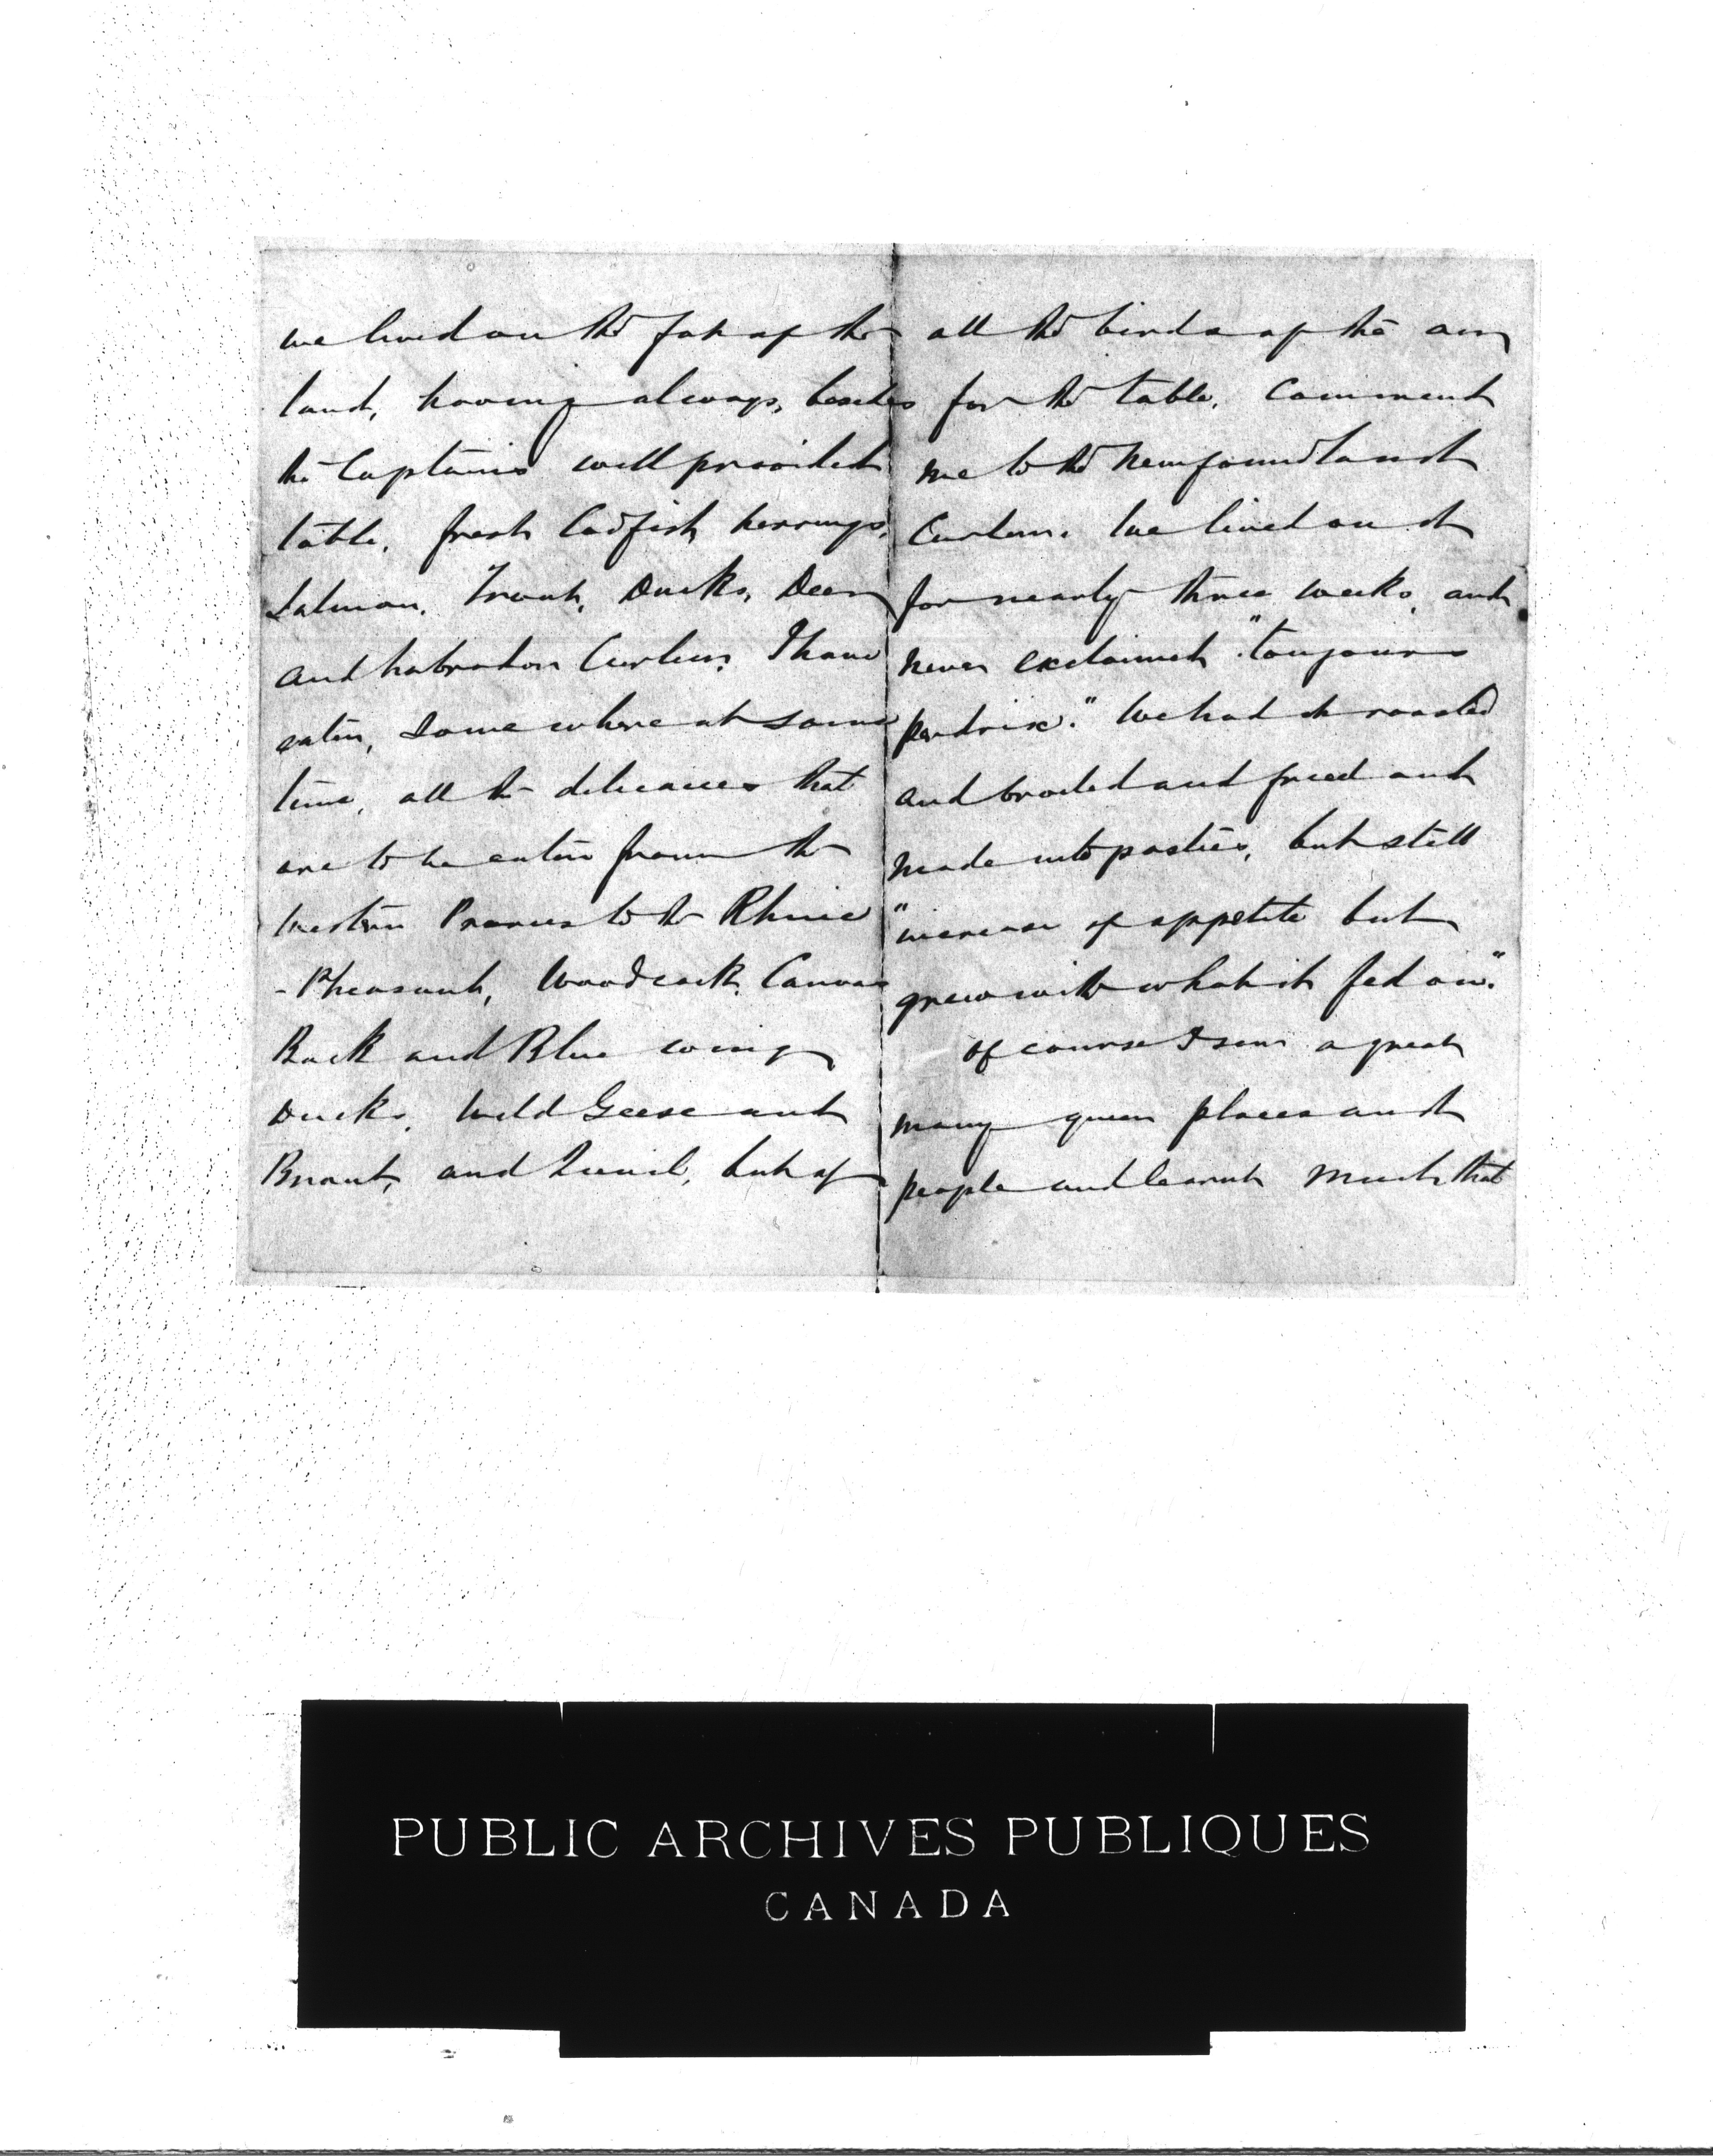 we lived on the fat of the
land, having always, besides
the Captains well provided
table, fresh Codfish herrings,
Salmon, Trout, Ducks, Deer
and Labrador Curlew. I have
eaten, Some where at some
time, all the delicacies that
are to be eaten from the
Western Praries to the Rhine
- Pheasant, Woodcock, Canvas
Back and Blue wing
Ducks, Wild Geese and
Brant, and Quail, but of
all the birds of the air
for the table, Commend
me to the Newfoundland
Curlew. We lived on it
for nearly three weeks, and
never exclaimed "toujours
perdrix." We had it roasted
and broiled and fried and
made into pasties, but still
"increase of appetite but
grew with what it fed on."
Of course I saw a great
many queer places and
people and learnt much that
PUBLIC ARCHIVES PUBLIQUES
CANADA